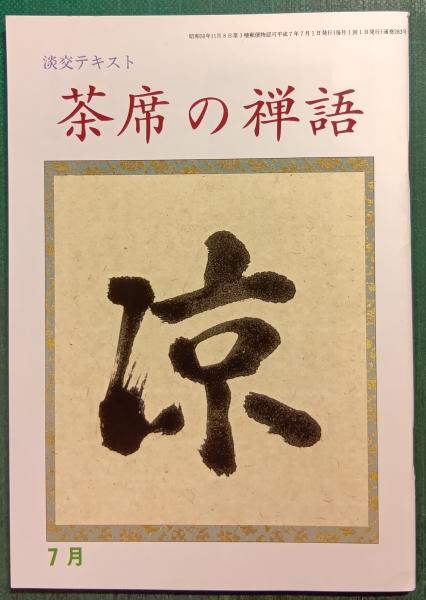 昭和50年11月8日第3種郵便物認可平成7年7月1日発行(毎月1回1日発行)通巻283号
淡交テキスト
茶席の禅語
涼
7月